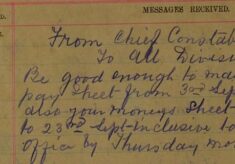 D.
MESSAGES RECEIVED.
From Chief Constab
To All Divisi
Be good enough to ma
pay sheet from 3rd Sep
also your moneys sheet
to 23rd Sept inclusive to
office by Thursday mo